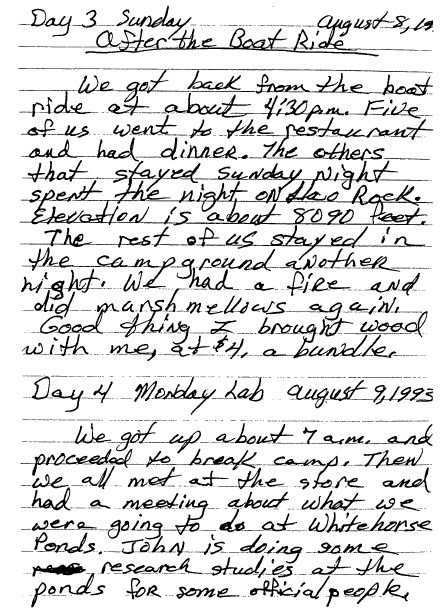 Day 3 Sunday August 8, 19
After the Boat Ride
We got back from the boat
ride at about 4:30 p.m. Five
of us went to the restaurant
and had dinner. The others
that stayed Sunday night
spent the night on Rock.
Elevation is about 8090 feet.
The rest of us stayed in
the campground another
night. We had a fire and
did marshmellows again.
Good thing I brought wood
with me, at $4. a bundle.
Day 4 Monday Lab August 9, 1993
We got up about 7 a.m. and
proceeded to break camp. Then
we all met at the store and
had a meeting about what we
were going to do at Whitehorse
Ponds. John is doing some
research studies at the
ponds for some official people.